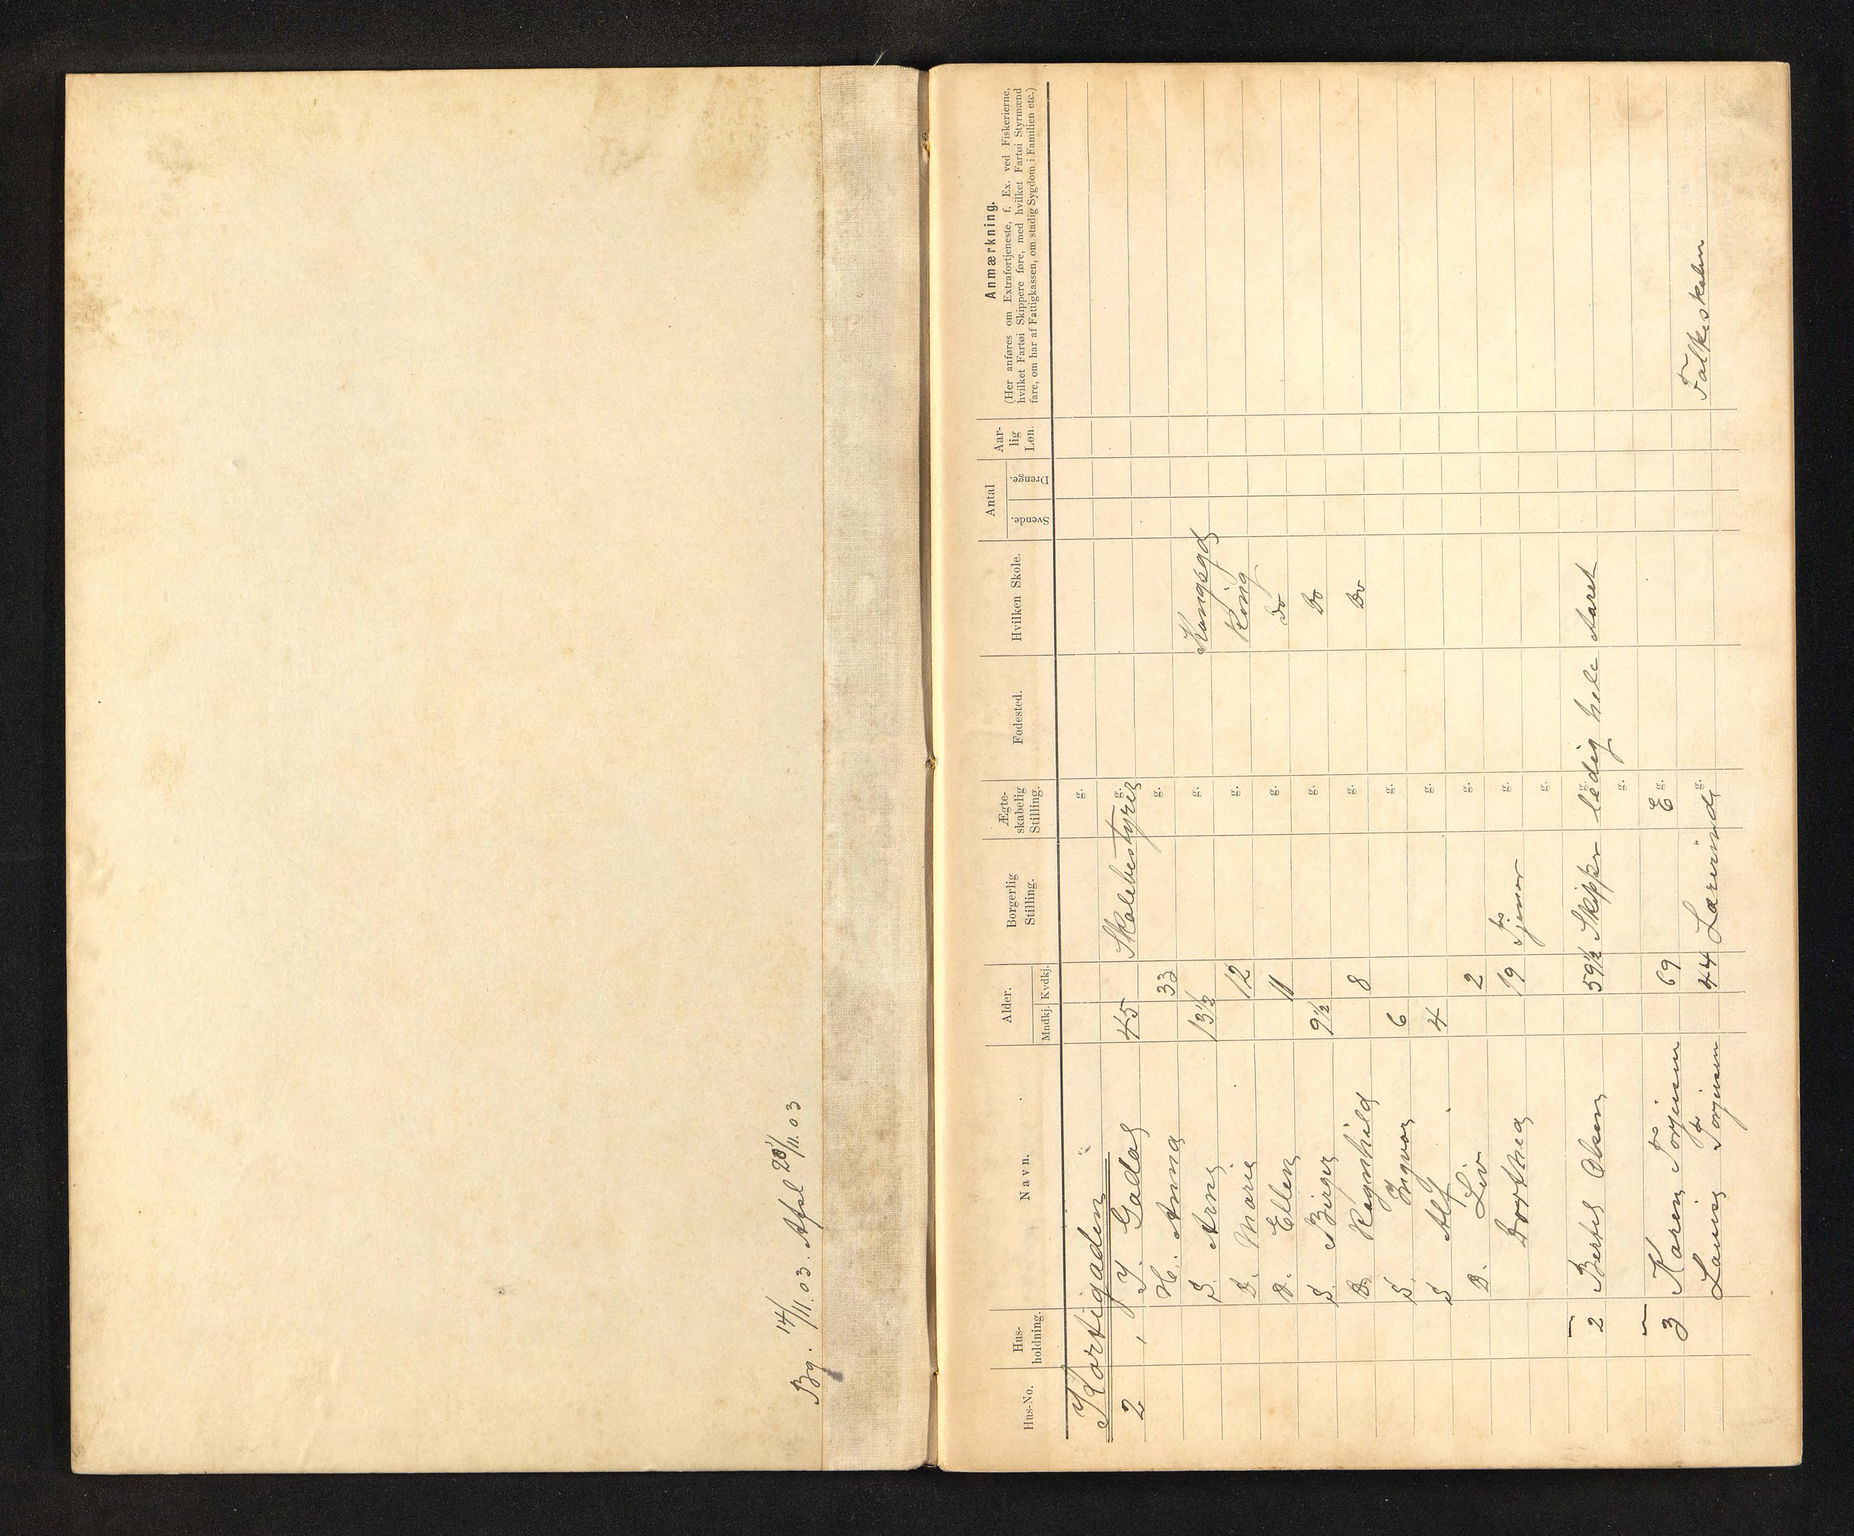 Bg. 14/11.03. Afsl 28/11.03
Hus-No.
Hus-
holdning.
Navn.
Alder.
Mndkj. Kvdkj.
Borgerlig
Stilling.
Ægte-
skabelig
Stilling.
Fødested.
Hvilken Skole.
Antal
Svende. Drenge.
Aar-
lig
Løn.
Anmærkning.
(Her anføres om Extrafortjeneste, f. Ex. ved Fiskerierne,
hvilket Fartøi Skippere føre, med hvilket Fartøi Styrmænd
fare, om har af Fattigkassen, om stadig Sygdom i Familien etc.)
g.
2 45 Skolebestyrer g.
H. Anna 33 g.
S. Arne 13½ g. Kongsgd
D. Marie 12 g. Kong
D. Ellen 11 g. Do
S. Birger 9½ g. Do
D. Ragnhild 8 g. Do
S. Ingvar 6 g.
S Alf 4 g.
D. Liv 2 g.
Dorthea 19 g.
g.
2 Bertel Olsen 59½ Skipper ledig hele Aaret g.
g.
3 Karen 69 E g.
44 g.